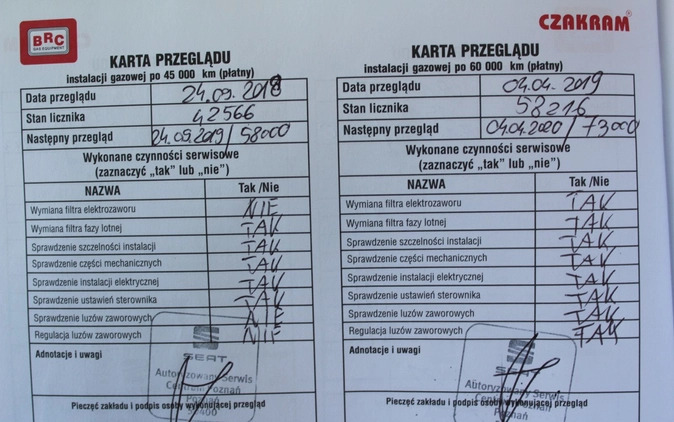 BRC
GAS EQUIPMENT
KARTA PRZEGLĄDU
instalacji gazowej po 45 000 km (płatny)
Data przeglądu 24.09.2018
Stan licznika 42566
Następny przegląd 24.09.2019 / 58000
Wykonane czynności serwisowe
(zaznaczyć „tak” lub „nie”)
NAZWA Tak /Nie
Wymiana filtra elektrozaworu NIE
Wymiana filtra fazy lotnej TAK
Sprawdzenie szczelności instalacji TAK
Sprawdzenie części mechanicznych TAK
Sprawdzenie instalacji elektrycznej TAK
Sprawdzenie ustawień sterownika TAK
Sprawdzenie luzów zaworowych NIE
Regulacja luzów zaworowych NIE
Adnotacje i uwagi
SEAT
Autoryzowany Serwis
Centrum Poznań
Poznań
Pieczęć zakładu i podpis osoby wykonującej przegląd
CZAKRAM®
KARTA PRZEGLĄDU
instalacji gazowej po 60 000 km (płatny)
Data przeglądu 04.04.2019
Stan licznika 58216
Następny przegląd 04.04.2020 / 73000
Wykonane czynności serwisowe
(zaznaczyć „tak” lub „nie”)
NAZWA Tak /Nie
Wymiana filtra elektrozaworu TAK
Wymiana filtra fazy lotnej TAK
Sprawdzenie szczelności instalacji TAK
Sprawdzenie części mechanicznych TAK
Sprawdzenie instalacji elektrycznej TAK
Sprawdzenie ustawień sterownika TAK
Sprawdzenie luzów zaworowych TAK
Regulacja luzów zaworowych TAK
Adnotacje i uwagi
SEAT
Autoryzowany Serwis
Centrum Poznań
Pieczęć zakładu i podpis osoby wykonującej przegląd
Poznań